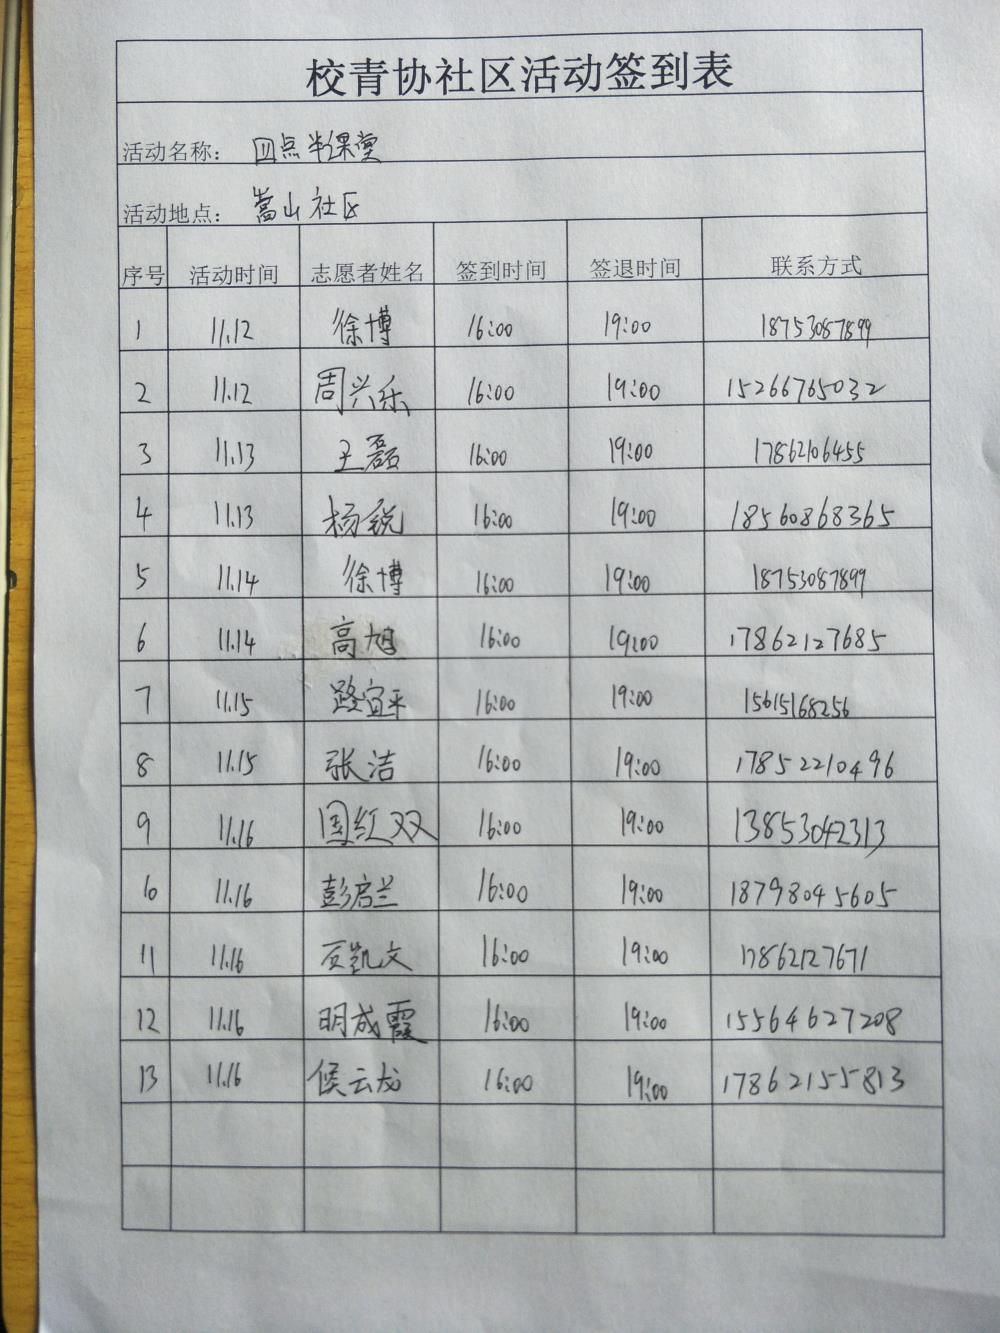 校青协社区活动签到表
活动名称： 四点半课堂
活动地点： 嵩山社区
序号 活动时间 志愿者姓名 签到时间 签退时间 联系方式
1 11.12 徐博 16:00 19:00 18753087899
2 11.12 周兴乐 16:00 19:00 15266765032
3 11.13 王磊 16:00 19:00 17862106455
4 11.13 杨锐 16:00 19:00 18560868365
5 11.14 徐博 16:00 19:00 18753087899
6 11.14 高旭 16:00 19:00 17862127685
7 11.15 路宜平 16:00 19:00 15615168256
8 11.15 张洁 16:00 19:00 17852210496
9 11.16 国红双 16:00 19:00 13853042313
10 11.16 彭启兰 16:00 19:00 18798045605
11 11.16 凯文 16:00 19:00 17862127671
12 11.16 明成霞 16:00 19:00 15564627208
13 11.16 侯云龙 16:00 19:00 17862155813